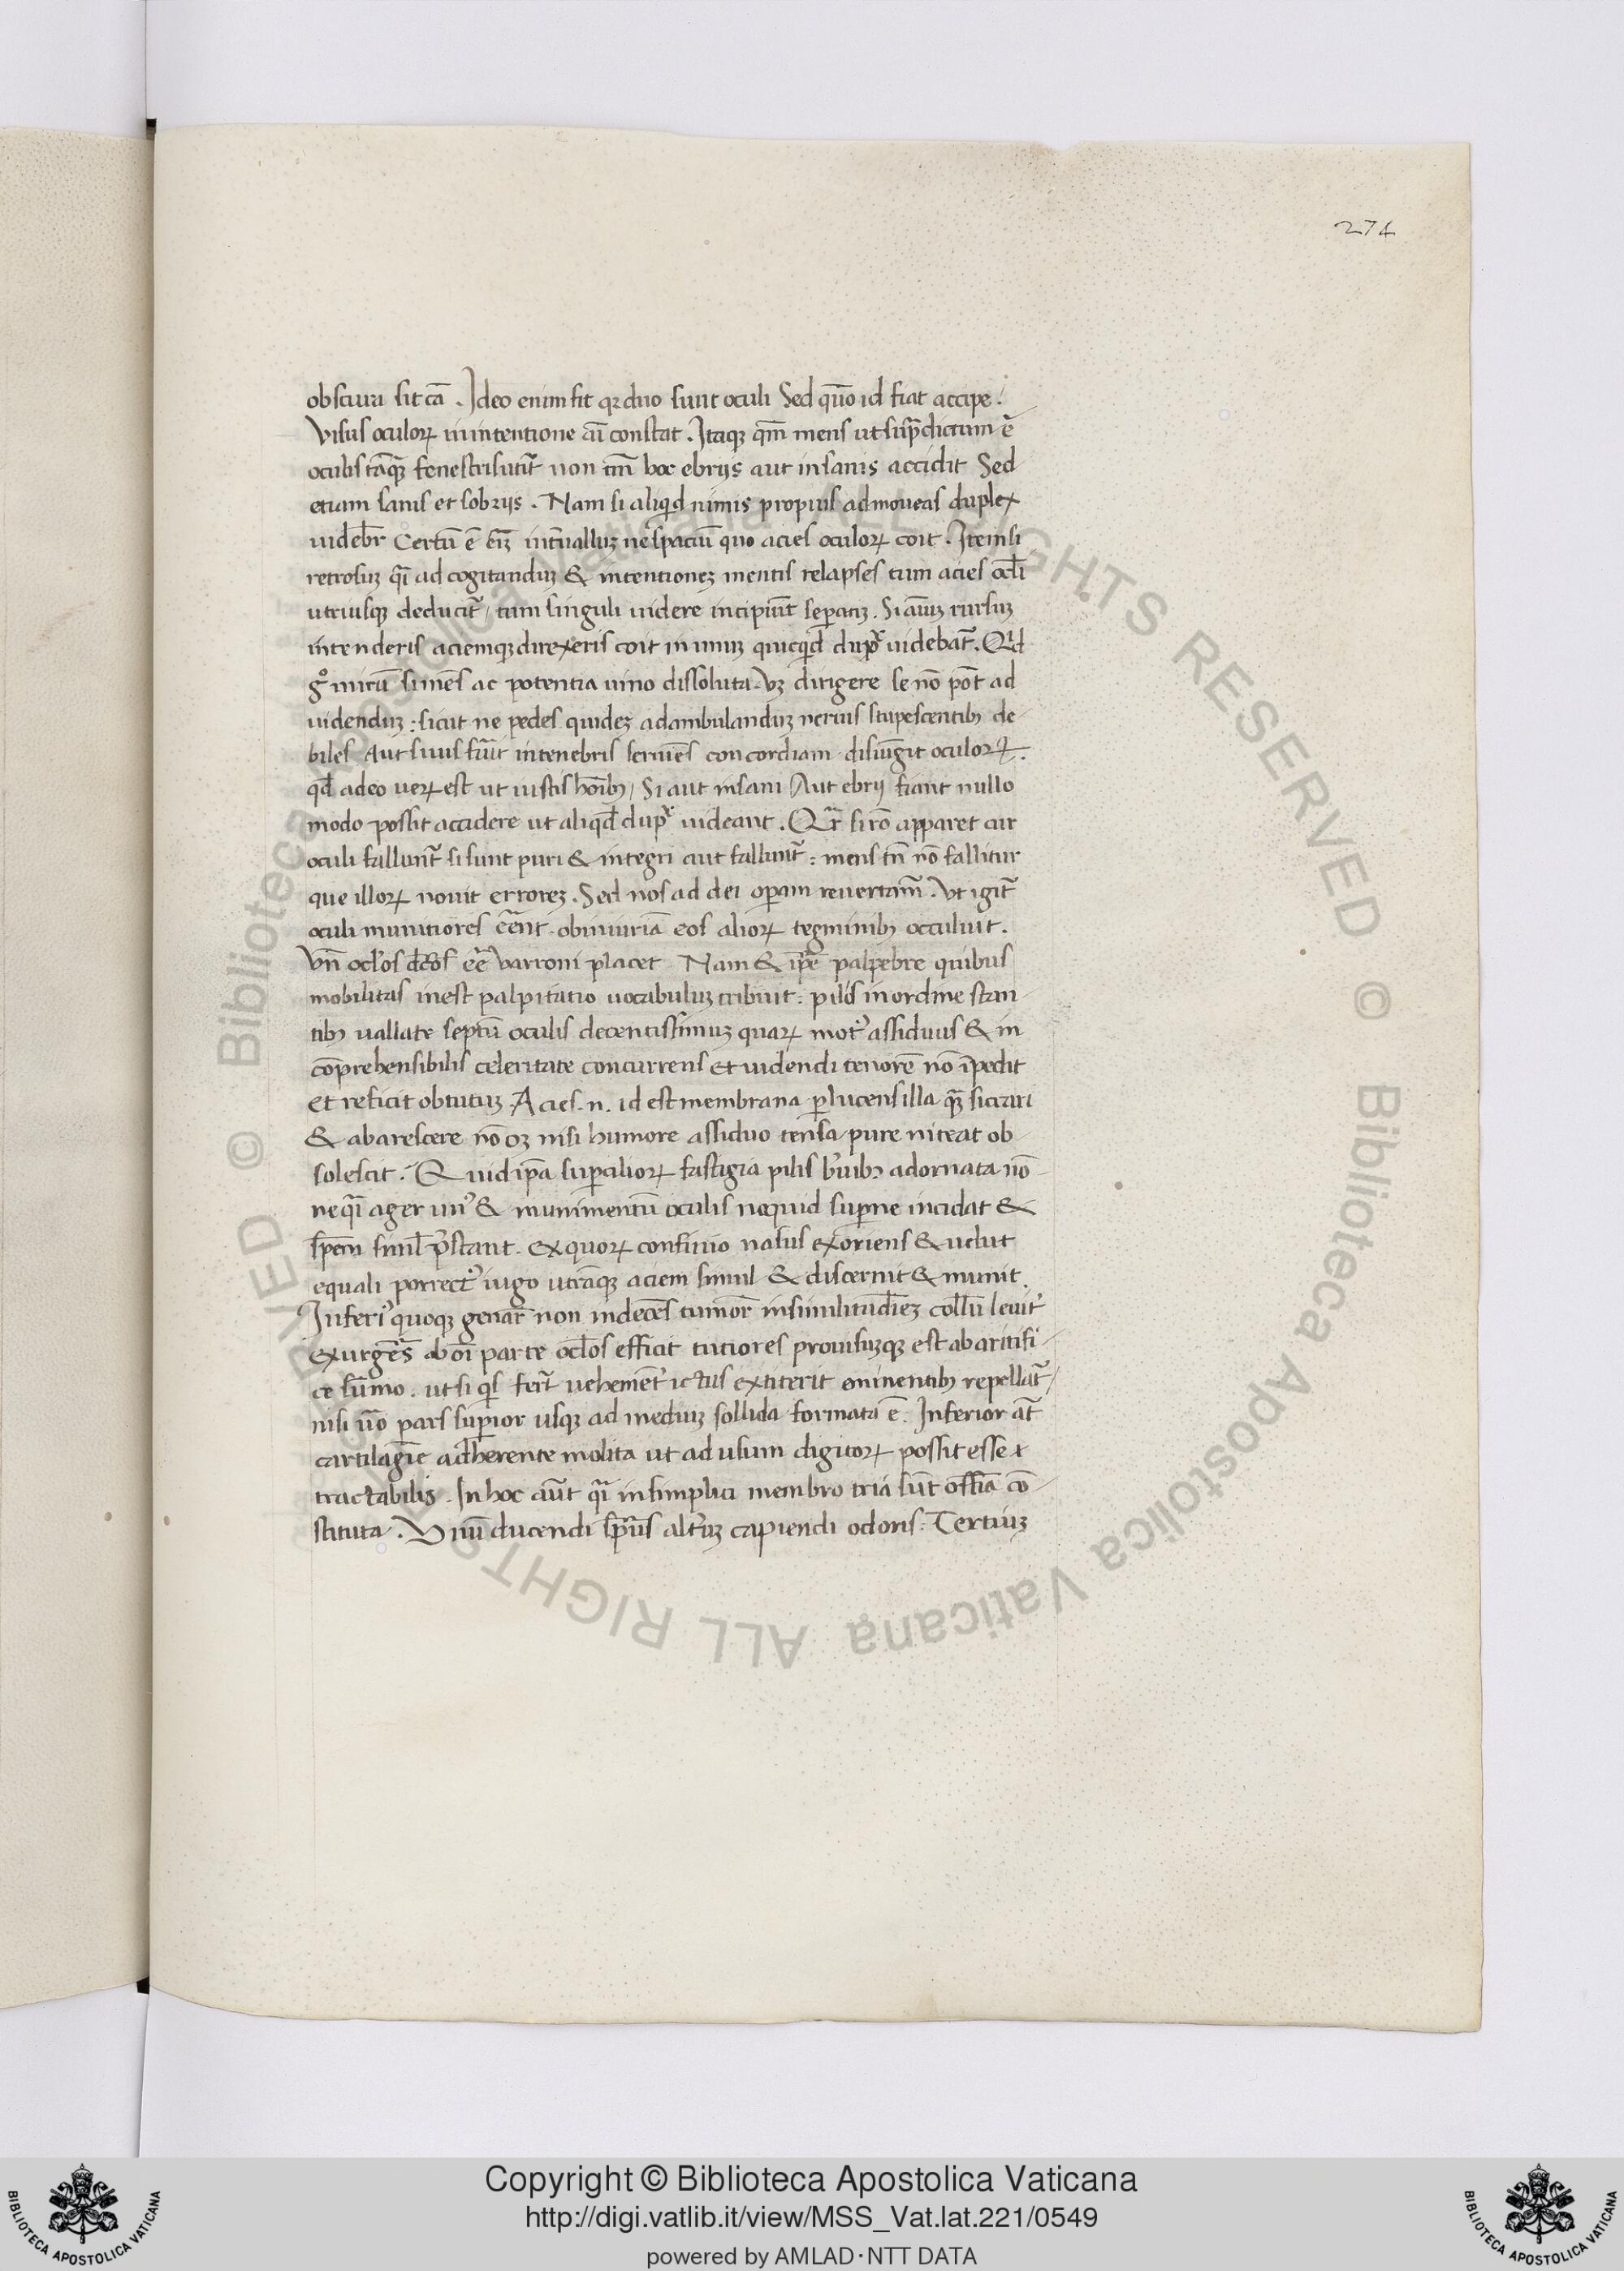 274
obscura sit cā . Ideo enim fit qꝛ duo sunt oculi Sed qūo id fiat accipe .
Visus oculoꝝ in intentione aī constat . Itaqꝫ qm̄ mens ut sup̄dictum ē
oculis tāqꝫ fenestris utit̄ non tm̄ hoc ebrijs aut insanis accidit Sed
etiam sanis et sobrijs . Nam si aliqid nimis propius admoueas duplex
uidebr̄ Certū ē .n. int̄uallūz spaciū quo acies oculoꝝ coit . Item si
retrosuꝫ qͣi ad cogitanduꝫ & intentioneꝫ mentis relapses tum acies ocl̄i
utriusqꝫ deducit̄ / tum singuli uidere incipiūt sep̄atiꝫ . Si aūtꝫ rursuꝫ
intenderis aciemqꝫ direxeris coit in unuꝫ quicqid dupꝉx uidebat̄ . Qid
gͦ mirū si mēs ac potentia uino dissoluta dirigere se nō pōt ad
uidenduꝫ : sicut ne pedes quideꝫ ad ambulanduꝫ neruis stupescentibꝫ de-
biles Aut si uis in tenebris concordiam disiūgit oculoꝝ .
qd̄ adeo ueꝝ est ut iustis hōibꝫ / Si aut insani Aut ebrij fiant nullo
modo possit accidere ut aliqd̄ dupꝉx uideant . Qr̄ si rō apparet cur
oculi fallunt̄ si sunt puri & integri aut fallunt̄ : mens tn̄ nō fallitur
que illoꝝ nouit erroreꝫ . Sed nos ad dei op̄am reuertam̄ . Vt igit̄
oculi munitiores eēnt . ob iniuriā eos alioꝝ tegminibꝫ occuluit .
Vn̄ ocl̄os dc̄os eē Varroni placet Nam & ip̄e palpebre quibus
mobilitas inest palpitatio uocabuluꝫ tribuit : pilis in ordine stan-
tibꝫ uallate septū oculis decentissimuꝫ quaꝝ motꝰ assiduus & in
cōprehensibilis celeritate concurrens et uidendi tenorē nō īpedit
et reficit obtutuꝫ . Acies .n. id est membrana p̱lucens illa qͣꝫ siccari
& abarescere nō oꝫ nisi humore assiduo tensa pure niteat ob-
solescit . Quid ip̄a sup̱ciliorꝝ fastigia pilis bͬuibꝫ adornata nō
ne qͣi ager unꝰ & munimentū oculis nequid sup̱ne incidat &
sp̄em simul p̄stant . ex quoꝝ confinio nasus exoriens & uelut
equali porrectꝰ iugo utrāqꝫ aciem simul & discernit & munit .
Inferiꝰ quoqꝫ genar̄ non indecēs tumor in similitud̄ieꝫ coll̄iū leuit̄
exurgēs ab oī parte ocl̄os efficit tutiores prouisuꝫqꝫ est ab artifi-
ce sūmo . ut si qs fort̄ uehemēt ictus extiterit eminentibꝫ repellat̄ /
nisi ūo pars sup̱ior usqꝫ ad mediuꝫ sollida formata ē . Inferior at̄
cartilagīe adherente molita ut ad usum digitoꝝ possit esse
tractabilis . In hoc aūt qͣi in simplici membro tria sūt offīa cō-
stituta . Vnū ducendi sp̄ūs altͬuꝫ capiendi odoris : Tertiuꝫ
© Biblioteca Apostolica Vaticana ALL RIGHTS RESERVED © Biblioteca Apostolica Vaticana ALL RIGHTS RESERVED
Copyright © Biblioteca Apostolica Vaticana
http://digi.vatlib.it/view/MSS_Vat.lat.221/0549
powered by AMLAD·NTT DATA
BIBLIOTECA APOSTOLICA VATICANA
BIBLIOTECA APOSTOLICA VATICANA